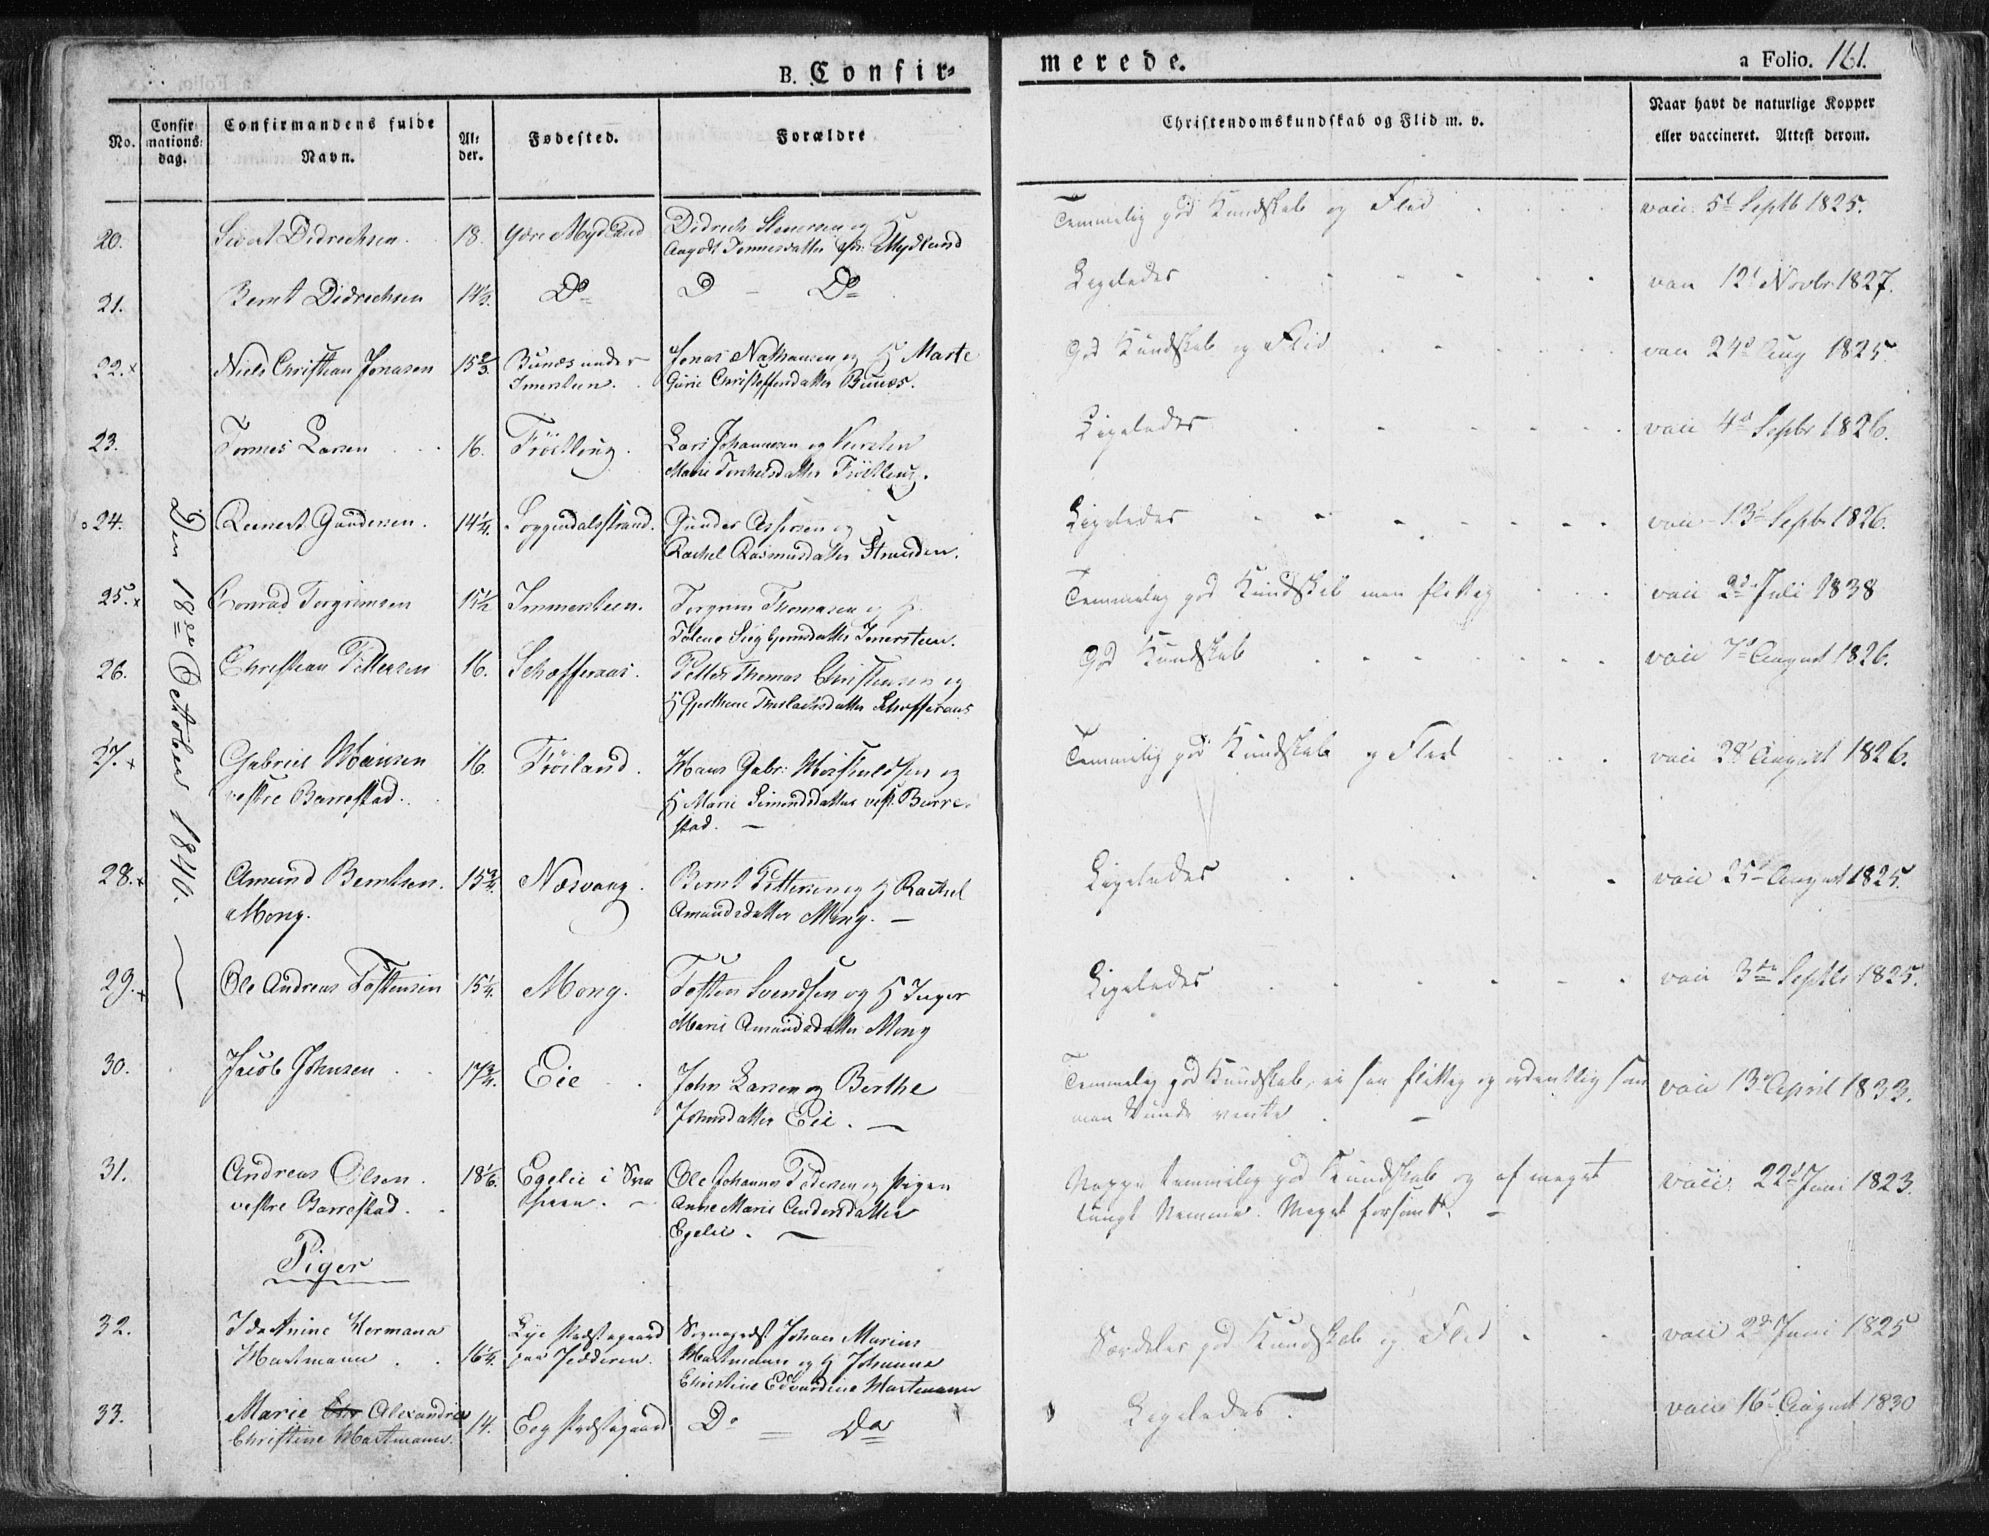 B. Confir-
merede.
a Folio. 161.
No.
Confir
mations-
dag.
Confirmandens fulde
Navn.
Al-
der.
Fødested.
Forældre
Christendomskundskab og Flid m. v.
Naar havt de naturlige Kopper
eller vaccineret. Attest derom.
Den 18de October 1840.
20. Sivert Didrichsen. 18. Didrich og
Mydland
Temmelig god Kundskab og Flid vacc. 5t Septb 1825.
21. Bernt Didrichsen 14½. Do D – Do
Ligeledes vacc 12t Novbr 1827.
22. Niels Christian Jonasen 15⅔ Bunæs under Jonas Nathansen og H Marte
Gurie Christoffersdatter Bunæs.
God Kundskab og Flid vacc 24d Aug 1825.
23. Tønnes Larsen 16. Lars Johannesen og
Marie Torkelsdatter
Ligeledes vacc 4d Septbr 1826.
24. Reinert Gundersen. 14¼. Soggendalsstrand. Gunder Assersen og
Rachel Rasmusdatter Stranden.
Ligeledes vacc 13d Septbr 1826.
25. Conrad Torgrimsen 15½ Immersteen. Torgrim Thomasen og H
Tolene Sigbjørnsdatter Imersteen.
Temmelig god Kundskab men flittig vacc 2d Juli 1838
26. Christian Pettersen 16. Schofferaas. Petter Thomas Christensen og
H Gjerthene Schofferaas
God Kundskab vacc 7d August 1826.
27. Gabriel Hansen 16. Frøiland. Hans Gabr: og
vestre Barrestad. H Marie Simonsdatter vest. Barre-
stad. –
Temmelig god Kundskab og Flid vacc 28d August 1826.
28. Amund Berntsen. 15¾. Næsvaag. Bernt Pettersen og H Rachel
Mong. Amundsdatter Mong. –
Ligeledes vacc 25d August 1825.
29. Ole Andreas Tostensen 15¼. Mong. Tosten Svendsen og H Inger
Marie Amundsdatter Mong
Ligeledes vacc 3die Septbr 1825.
30. Jacob Johnsen 17¾. Eie John Larsen og Berthe
Johnsdatter Eie. –
Temmelig god Kundskab, ei saa flittig og ordentlig som vacc 13d April 1833.
man kunde vente.
31. Andreas Olsen. 18⅙. Egelie i Ole Johannes Pedersen og Pigen
vestre Barrestad. Anne Marie Andersdatter
Egelie. –
Neppe temmelig god Kundskab og af meget vacc. 22d Juni 1823.
tungt Nemme. Meget forsømt. –
Piger
32. Ida Anine Hermana Præstegaard Sognepræst Johan Marius
Hartmann 16¼. paa Jedderen. Hartmann og H Johanne
Christine Edvardine Hartmann
Særdeles god Kundskab og Flid vacc 2d Juni 1825
33. Marie Alexandria 14. Præstegaard Do = Do
Christine Hartmann.
Ligeledes. vacc 16d August 1830